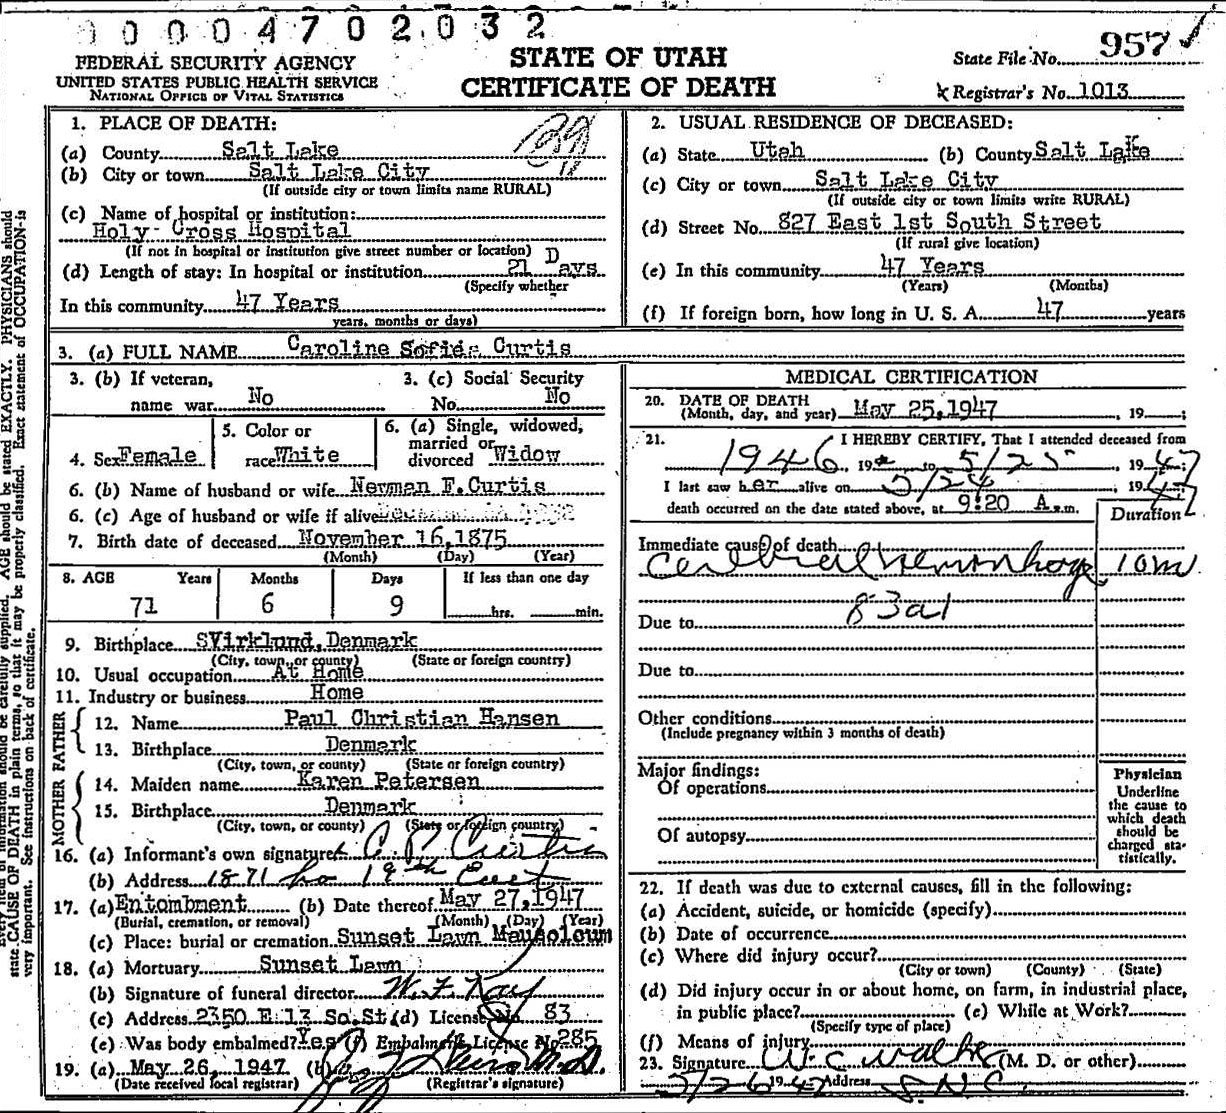 0 0 0 0 4 7 0 2 0 3 2
FEDERAL SECURITY AGENCY
UNITED STATES PUBLIC HEALTH SERVICE
NATIONAL OFFICE OF VITAL STATISTICS
STATE OF UTAH
CERTIFICATE OF DEATH
State File No. 957
Registrar's No. 1013
1. PLACE OF DEATH:
(a) County Salt Lake
(b) City or town Salt Lake City
(If outside city or town limits name RURAL)
(c) Name of hospital or institution:
Holy Cross Hospital
(If not in hospital or institution give street number or location)
(d) Length of stay: In hospital or institution 21 Days
(Specify whether
In this community 47 Years
years, months or days)
2. USUAL RESIDENCE OF DECEASED:
(a) State Utah (b) County Salt Lake
(c) City or town Salt Lake City
(If outside city or town limits write RURAL)
(d) Street No. 827 East 1st South Street
(If rural give location)
(e) In this community 47 Years
(Years) (Months)
(f) If foreign born, how long in U. S. A. 47 years
3. (a) FULL NAME Caroline Sofide Curtis
3. (b) If veteran,
name war No
3. (c) Social Security
No. No
4. Sex Female
5. Color or
race White
6. (a) Single, widowed,
married or
divorced Widow
6. (b) Name of husband or wife Newman F. Curtis
6. (c) Age of husband or wife if alive
7. Birth date of deceased November 16, 1875
(Month) (Day) (Year)
8. AGE Years Months Days If less than one day
71 6 9 hrs. min.
9. Birthplace SVirklund, Denmark
(City, town, or county) (State or foreign country)
10. Usual occupation At Home
11. Industry or business Home
FATHER
12. Name Paul Christian Hansen
13. Birthplace Denmark
(City, town, or county) (State or foreign country)
MOTHER
14. Maiden name Karen Petersen
15. Birthplace Denmark
(City, town, or county) (State or foreign country)
16. (a) Informant's own signature C. P. Curtis
(b) Address 1871 So 19th East
17. (a) Entombment (b) Date thereof May 27, 1947
(Burial, cremation, or removal) (Month) (Day) (Year)
(c) Place: burial or cremation Sunset Lawn Mausoleum
18. (a) Mortuary Sunset Lawn
(b) Signature of funeral director W. F. Kay
(c) Address 2350 E 13 So. St. (d) License No. 83
(e) Was body embalmed? Yes (f) Embalmer License No. 285
19. (a) May 26, 1947 (b)
(Date received local registrar) (Registrar's signature)
MEDICAL CERTIFICATION
20. DATE OF DEATH
(Month, day, and year) May 25, 1947, 19 ;
21. I HEREBY CERTIFY, That I attended deceased from
1946, 19 to 5/25, 1947
I last saw her alive on 5/24 1947
death occurred on the date stated above, at 9:20 A. m.
Duration
Immediate cause of death
Cerebral Hemorrhage 10m
83a1
Due to
Due to
Other conditions
(Include pregnancy within 3 months of death)
Major findings:
Of operations
Of autopsy
Physician
Underline
the cause to
which death
should be
charged sta-
tistically.
22. If death was due to external causes, fill in the following:
(a) Accident, suicide, or homicide (specify)
(b) Date of occurrence
(c) Where did injury occur?
(City or town) (County) (State)
(d) Did injury occur in or about home, on farm, in industrial place,
in public place? (e) While at Work?
(Specify type of place)
(f) Means of injury
23. Signature W. C. Walker (M. D. or other)
5/26 1947 Address
state CAUSE OF DEATH in plain terms, so that it may be properly classified. Exact statement of OCCUPATION is
very important. See instructions on back of certificate.
information should be carefully supplied. AGE should be stated EXACTLY. PHYSICIANS should